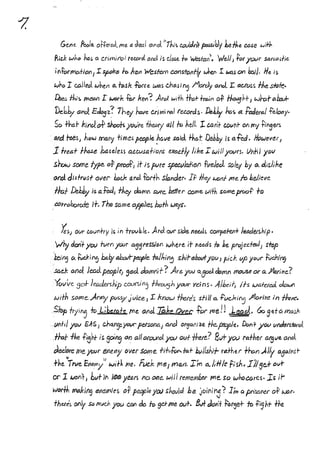 7.
Gene Poole offered me a deal and "This couldn't possibly be the case with
Rick who has a criminal record and is close to Weston". Well, for your sarcastic
information, I spoke to Ken Weston constantly when I was on bail. He is
who I called when a task force was chasing Mandy and I across the state.
Does this mean I work for Ken? And with that train of thought, what about
Debby and Edogz? They have criminal records. Debby has a Federal felony.
So that kind of shoots you're theory all to hell. I can't count on my fingers
and toes, how many times people have said that Debby is a fed. However,
I treat those baseless accusations exactly like I will yours. Until you
show some type of proof, it is pure speculation fueled soley by a dislike
and distrust over back and forth slander. If they want me to believe
that Debby is a fed, they damn sure better come with some proof to
corroborate it. The same applies both ways.
Yes, our country is in trouble. And our side needs competent leadership.
Why don't you turn your aggression where it needs to be projected, stop
being a fucking baby about people talking shit about you, pick up your fucking
sack and lead people, god damnit? Are you a god damn mouse or a Marine?
You've got leadership coursing through your veins. Albeit, its watered down
with some Army pussy juice, I know there's still a fucking Marine in there.
Stop trying to Liberate me and Take Over for me!! Lead. Go get a mask
until you EAS, change your persona, and organize the people. Don't you understand
that the fight is going on all around you out there? But you rather argue and
declare me your enemy over some tit-for-tat bullshit rather than Ally against
the "True Enemy" with me. Fuck me, man. I'm a little fish. I'll get out
or I won't, but in 100 years no one will remember me so who cares. Is it
worth making enemies of people you should be joining? I'm a prisoner of war.
there's only so much you can do to get me out. But don't forget to fight the